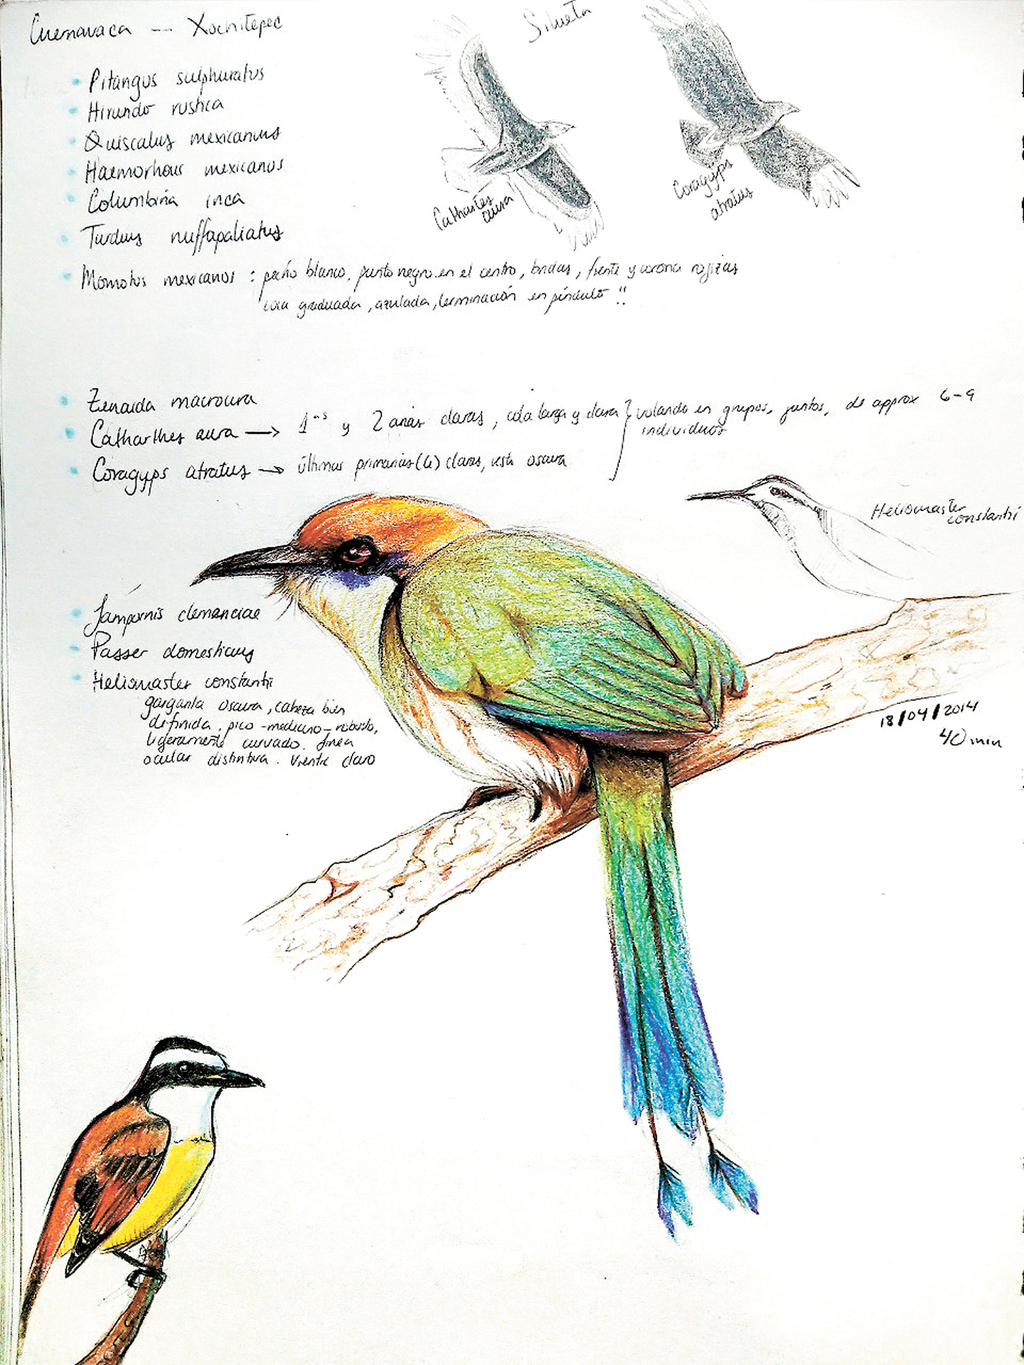 Cuernavaca -- Xochitepec
Silueta
Pitangus sulphuratus
Hirundo rustica
Quiscalus mexicanus
Haemorhous mexicanus
Columbina inca
Turdus ruffapaliatus
Cathartes
aura
Coragyps
atratus
Momotus mexicanus : pecho blanco, punto negro en el centro, bridas, frente y corona rojizas
cola graduada, azulada, terminación en péndulo !!
Zenaida macroura
Catharthes aura → 1ᵃˢ y 2arias claras, cola larga y clara } volando en grupos, juntos, de approx 6-9
individuos
Coragyps atratus → últimas primarias (6) claras, resto oscura
Heliomaster
constantii
Lampornis clemenciae
Passer domesticus
Heliomaster constantii
garganta oscura, cabeza bien
definida, pico -mediano-robusto,
ligeramente curvado. línea
ocular distintiva. Vientre claro
18/04/2014
40 min